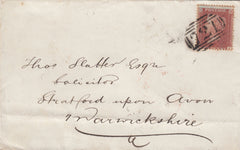 Thos Slatter Esqre
Solicitor
Stratford upon Avon
Warwickshire